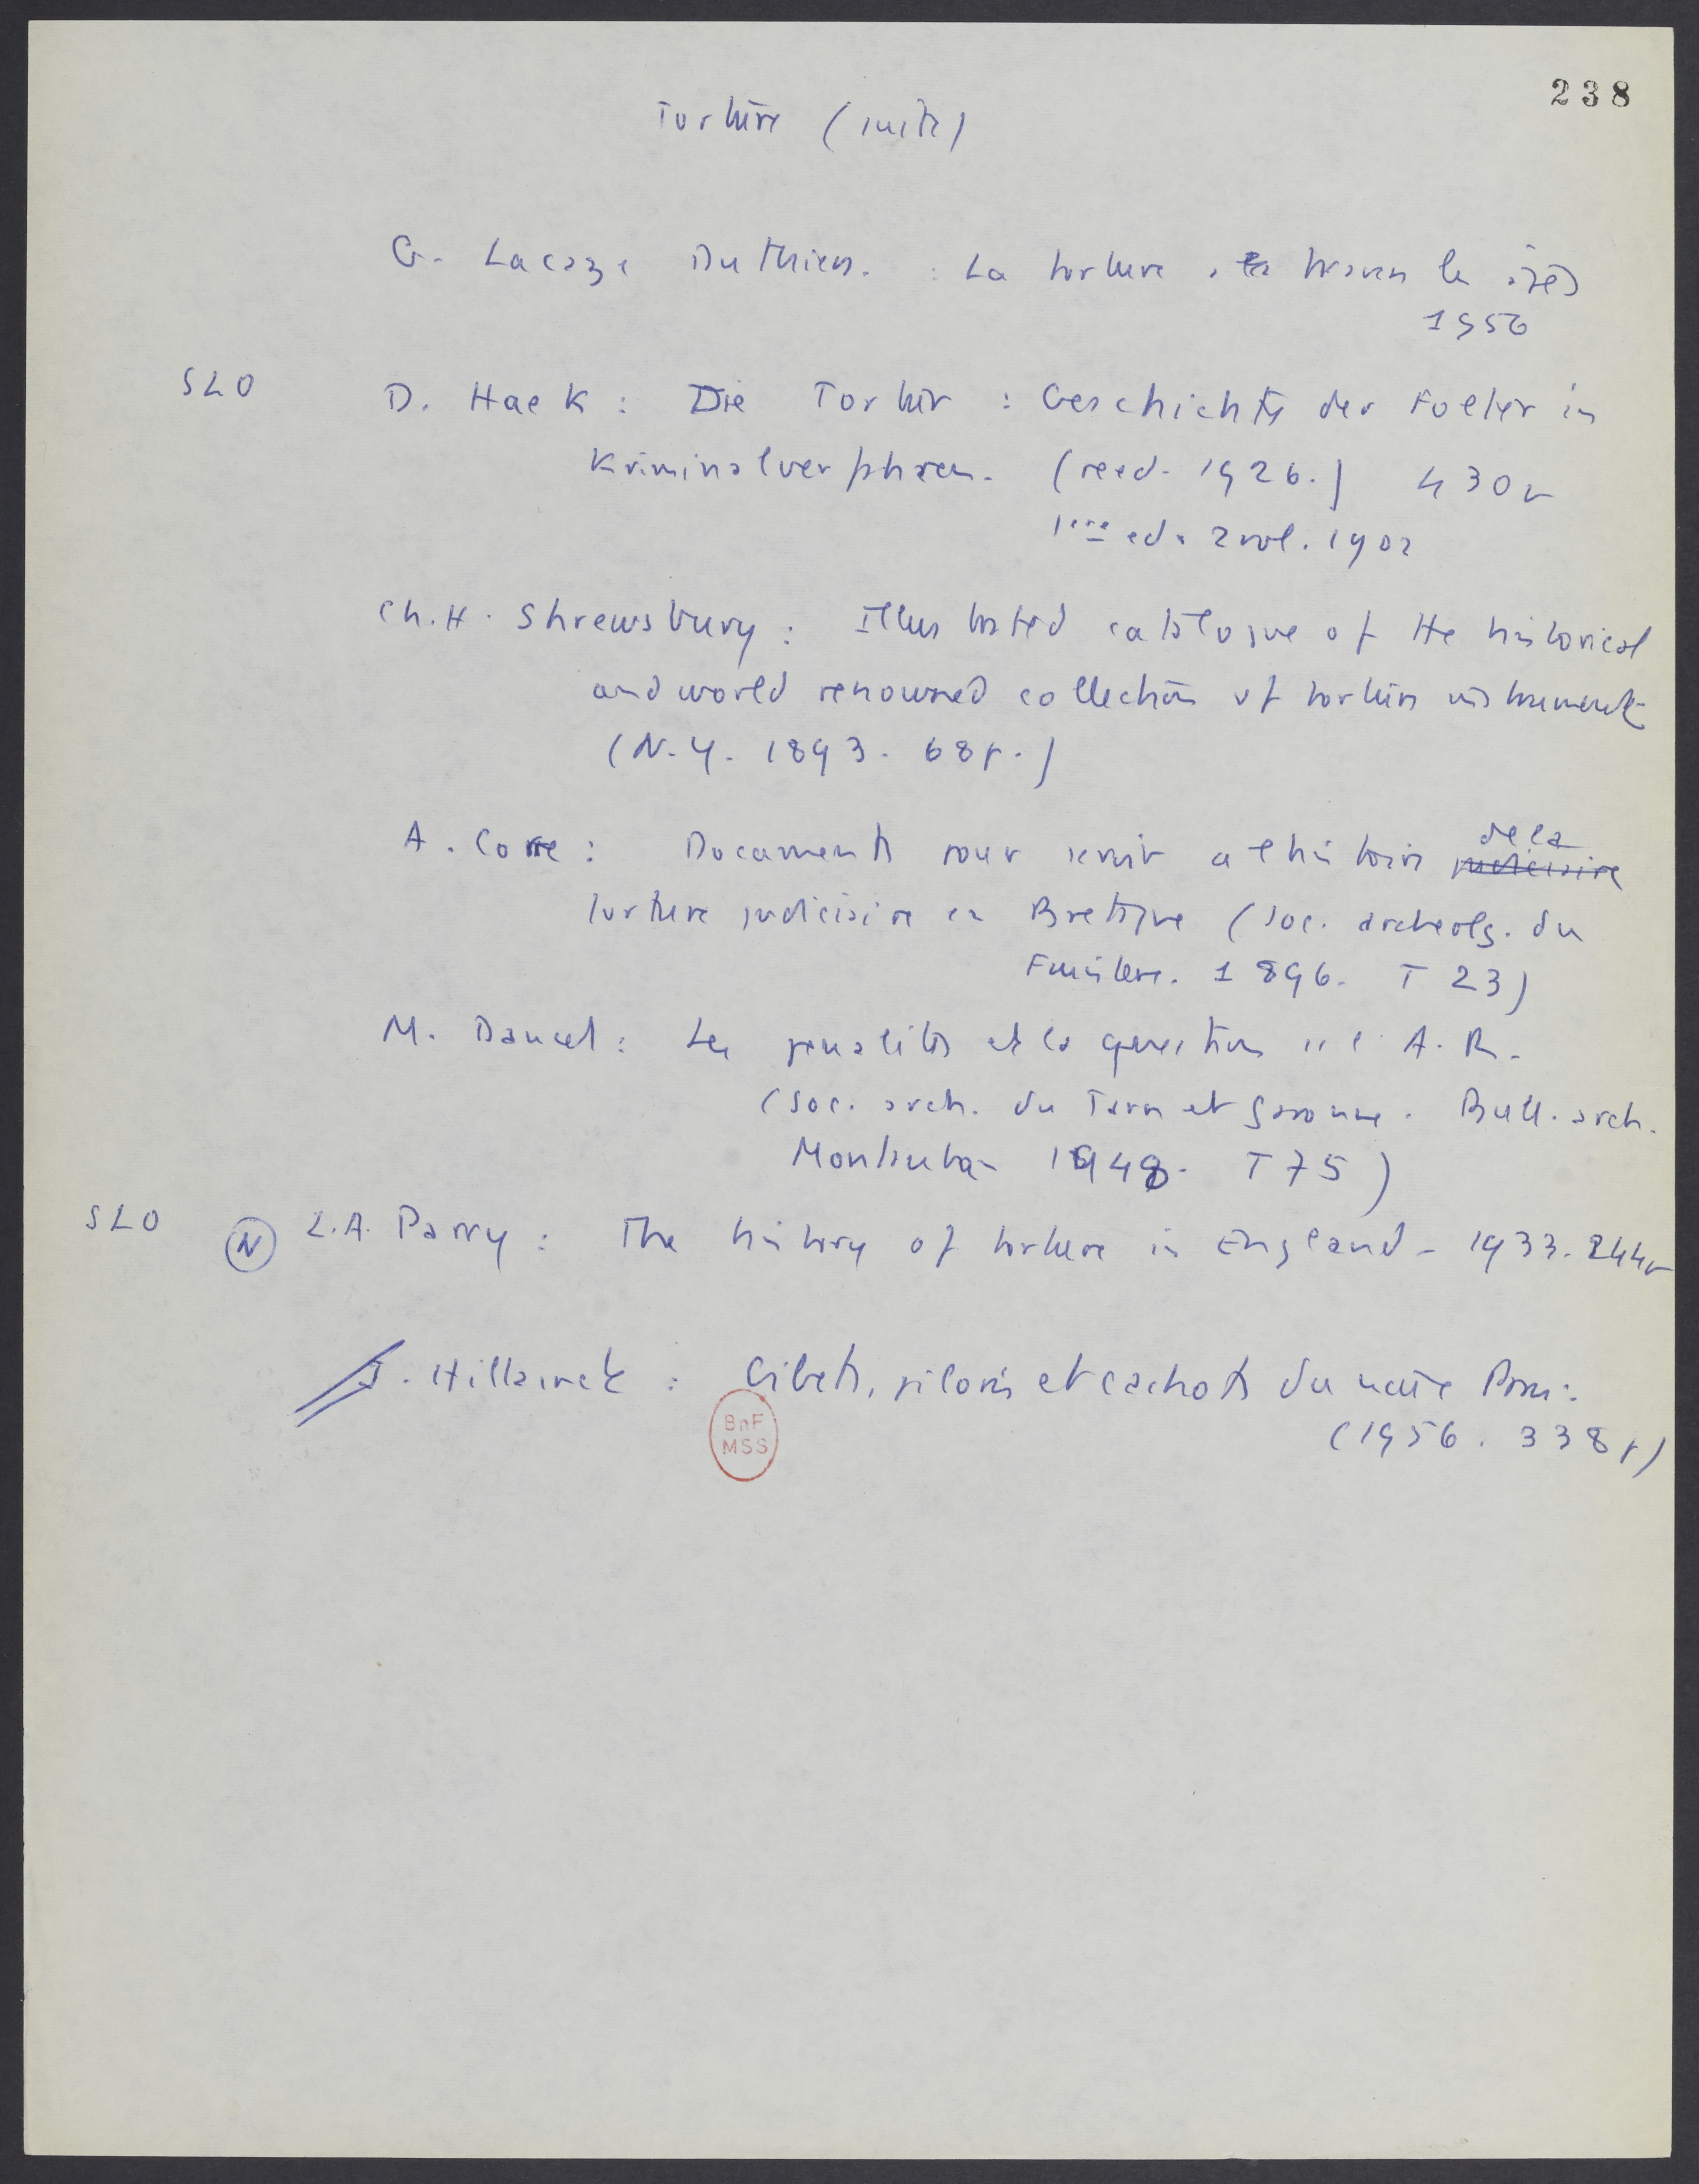 238
Torture (suite)
G. Lacaze Duthiers. : La torture à travers les âges
1956
SLO D. Haek : Die Tortur : Geschichte der Folter in
Kriminalverfahren. (reed. 1926.) 430 p
1ere ed. 2 vol. 1902
Ch. H. Shrewsbury : Illustrated catalogue of the historical
and world renowned collection of torture instruments
(N.Y. 1893. 68 p.)
A. Corre : Documents pour servir a l histoire de la judiciaire
torture judiciaire en Bretagne (soc. archeolg. du
Finistere. 1896. T 23)
M. Daucet : Les penalites et la question A. R.
(soc. arch. du Tarn et garonne. Bull. arch.
Montauban 1948. T 75)
SLO N L.A. Parry : The history of torture in England - 1933. 244 p
J. Hillairet : Gibets, piloris et cachots du vieux Paris.
(1956. 338 p)
BnF
MSS